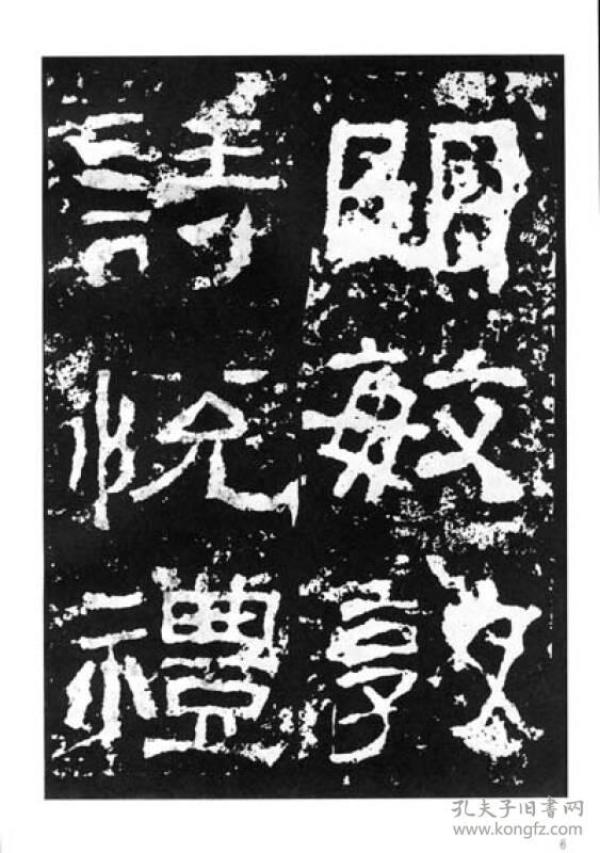 明敏敦
詩悅禮
孔夫子旧書网
www.kongfz.com
6